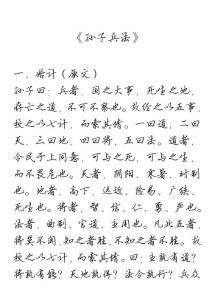 《孙子兵法》
一、始计（原文）
孙子曰：兵者，国之大事，死生之地，
存亡之道，不可不察也。故经之以五事，
校之以七计，而索其情。一曰道，二曰
天，三曰地，四曰将，五曰法。道者，
令民于上同意，可与之死，可与之生，
而不畏危也。天者，阴阳、寒暑、时制
也。地者，高下、远近、险易、广狭、
死生也。将者，智、信、仁、勇、严也。
法者，曲制、官道、主用也。凡此五者，
将莫不闻，知之者胜，不知之者不胜。故
校之以七计，而索其情。曰：主孰有道？
将孰有能？天地孰得？法令孰行？兵众